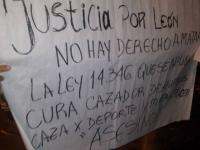 JUSTICIA POR LEÓN
NO HAY DERECHO A MATAR
LA LEY 14346 QUE SE
CURA CAZADOR DE
CAZA X DEPORTE
ASESINO